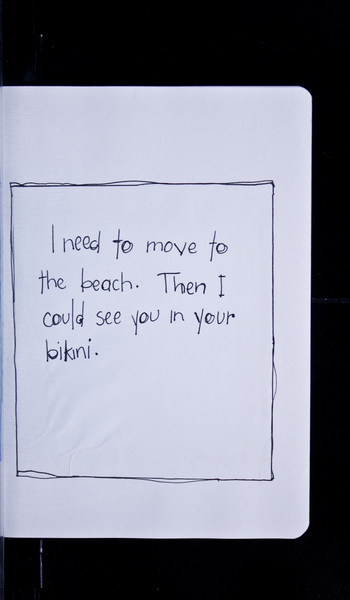 I need to move to
the beach. Then I
could see you in your
bikini.